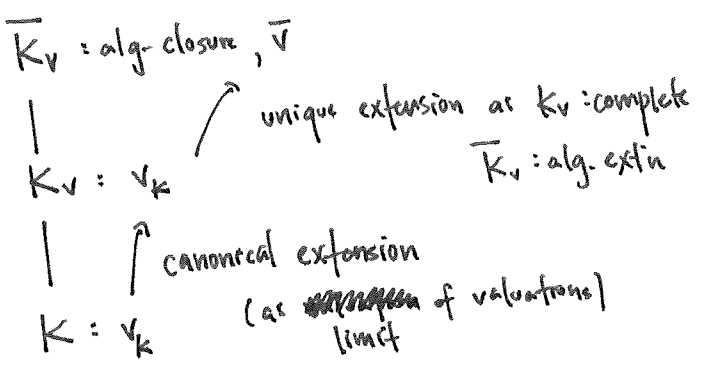 K̅_v : alg-closure, v̅
unique extension as K_v : complete
K̅_v : alg. ext'n
K_v : v_K
canonical extension
(as limit of valuations)
K : v_K